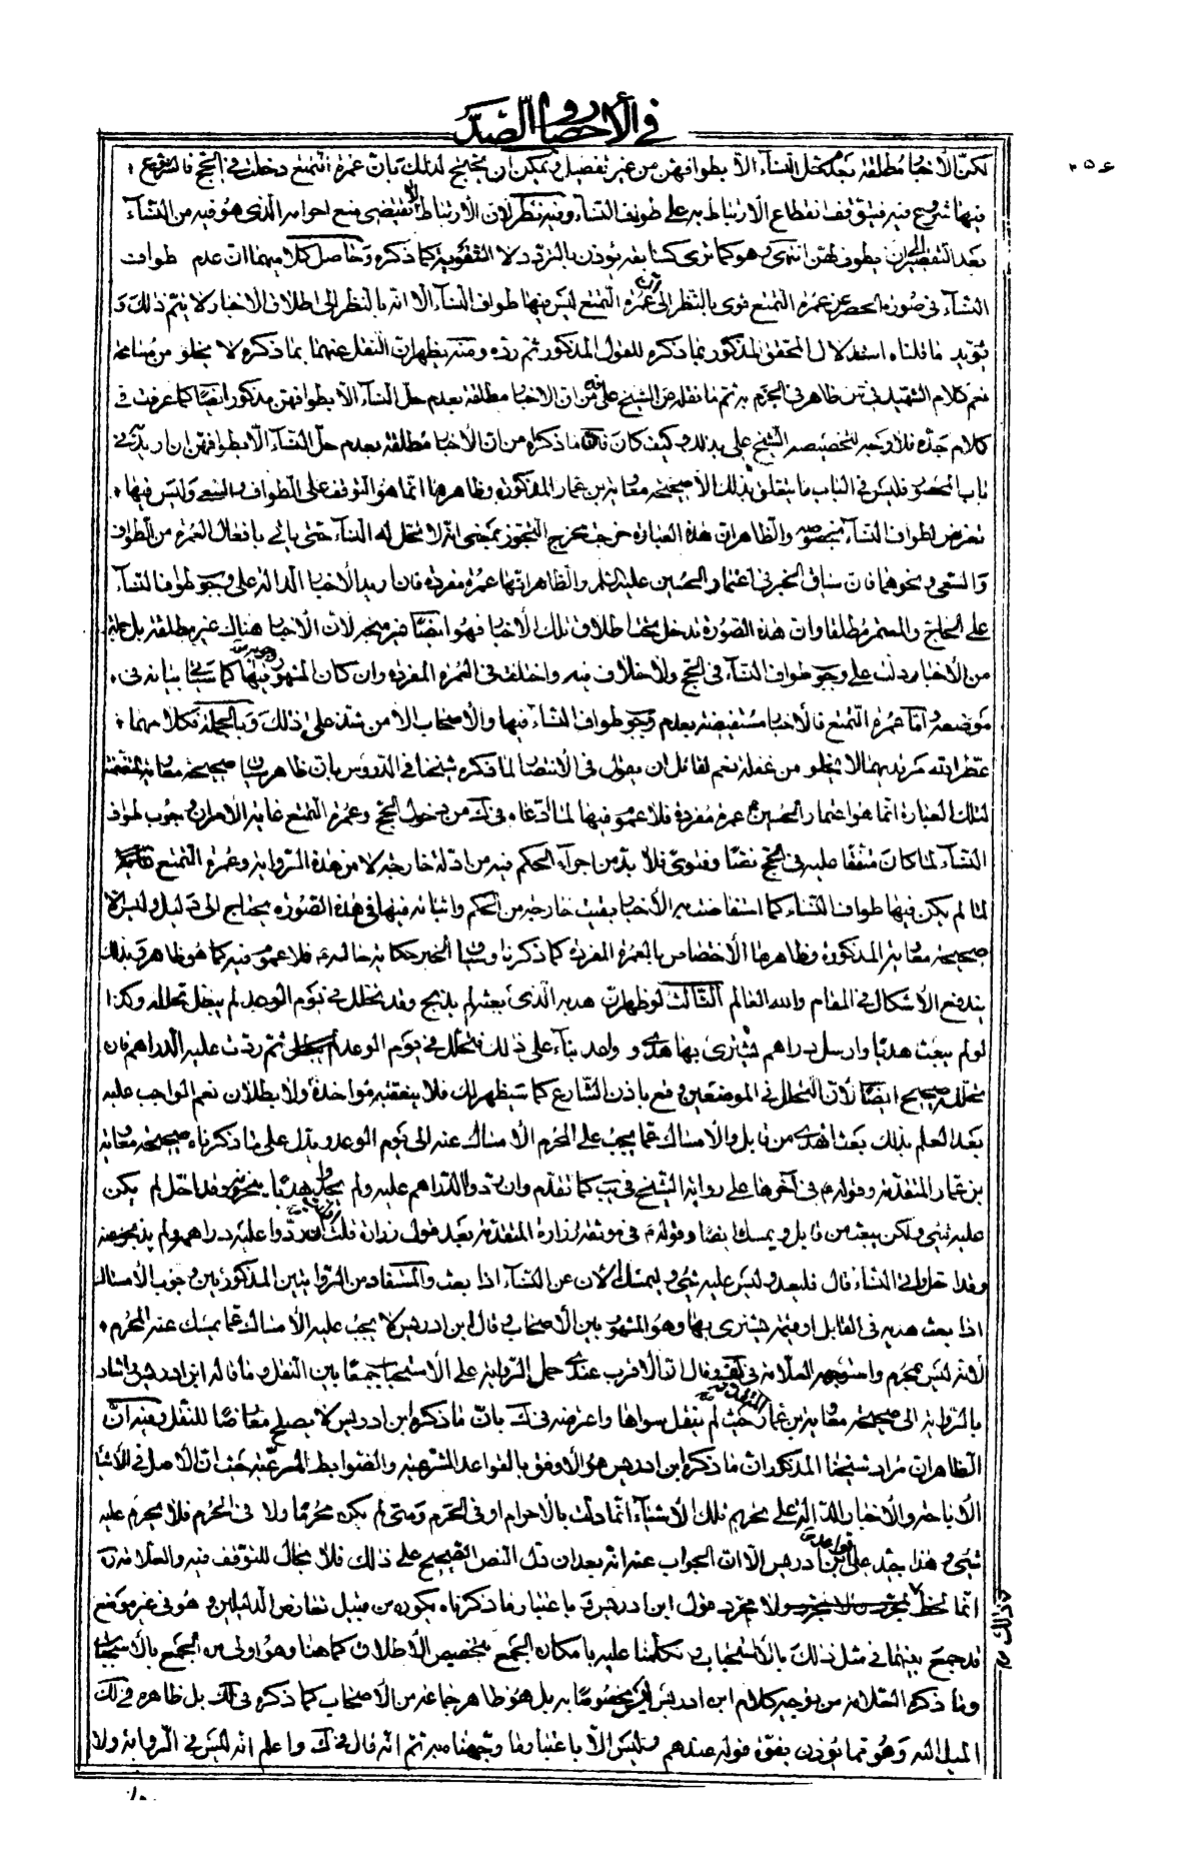 في الأحصار والصدّ
٢٥٤
لكن الأخبار مطلقة بعدم حل النساء الا بطوافهن من غير تفصيل ويمكن ان يحتج لذلك بان عمرة التمتع دخلت في الحج فالشروع
فيها شروع فيه فيتوقف انقطاع الارتباط به على طواف النساء وفيه نظر لان الارتباط لا يقتضي منع احرامه الذي هو فيه من النساء
بعد التقصير الى ان يطوف لهن انتهى وهو كما ترى كسابقه يؤذن بالتردد لا التقوية كما ذكره وحاصل كلاميهما ان عدم طواف
النساء في صورة الحصر عن عمرة التمتع قوي بالنظر الى ان عمرة التمتع ليس فيها طواف النساء الا انه بالنظر الى اطلاق الاخبار لا يتم ذلك و
يؤيد ما قلناه استدلال المحقق المذكور بما ذكره للقول المذكور ثم رده ومنه يظهر ان النقل عنهما بما ذكره لا يخلو من مسامحة
نعم كلام الشهيد في س ظاهر في الجزم به ثم ما نقله عن الشيخ علي ره من ان الاخبار مطلقة بعدم حل النساء الا بطوافهن مذكور ايضا كما عرفت في
كلام جده فلا وجه لتخصيصه الشيخ علي بذلك وكيف كان فان ما ذكراه من ان الأخبار مطلقة بعدم حل النساء الا بطوافهن ان اريد في
باب المحصور فليس في الباب ما يتعلق بذلك الا صحيحة معاوية بن عمار المذكورة وظاهرها انما هو التوقف على الطواف والسعي وليس فيها
تعرض لطواف النساء بخصوصه والظاهر ان هذه العبارة خرجت مخرج التجوز بمعنى انه لا تحل له النساء حتى يأتي بافعال العمرة من الطواف
والسعي ونحوهما فان سياق الخبر في اعتمار الحسين عليه السلم والظاهر انها عمرة مفردة فان اريد الأخبار الدالة على وجوب طواف النساء
على الحاج والمعتمر مطلقا وان هذه الصورة تدخل تحت اطلاق تلك الأخبار فهو ايضا غير متجه لان الأخبار هناك غير مطلقة بل جملة
من الأخبار دلت على وجوب طواف النساء في الحج ولا خلاف فيه واختلف في العمرة المفردة وان كان المشهور وجوبه فيها كما سيأتي بيانه في
موضعه واما عمرة التمتع فالأخبار مستفيضة بعدم وجوب طواف النساء فيها والأصحاب الا من شذ على ذلك وبالجملة فكلامهما
عطر الله مرقديهما لا يخلو من غفلة نعم لقائل ان يقول في الأنتصار لما ذكره شيخنا في الدروس بان ظاهر سياق صحيحة معاوية المتضمنة
لتلك العبارة انما هو اعتمار الحسين ع عمرة مفردة فلا عموم فيها لما ادعاه في ك من دخول الحج وعمرة التمتع غاية الأمر ان وجوب طواف
النساء لما كان متفقا عليه في الحج نصا وفتوى فلا بد من اجراء الحكم فيه من ادلة خارجة لا من هذه الرواية وعمرة التمتع
لما لم يكن فيها طواف النساء كما استفاضت به الأخبار بقيت خارجة من الحكم واثباته فيها في هذه الصورة يحتاج الى دليل وليس الا
صحيحة معاوية المذكورة وظاهرها الأختصاص بالعمرة المفردة كما ذكرنا وسياق الخبر حكاية حاله ع فلا عموم فيه كما هو ظاهر وبذلك
يندفع الأشكال في المقام والله العالم الثالث لو ظهر ان هديه الذي بعثه لم يذبح وقد تحلل في يوم الوعد لم يبطل تحلله وكذا
لو لم يبعث هديا وارسل دراهم ليشترى بها هدي وواعد بناء على ذلك فتحلل في يوم الوعد ثم ردت عليه الدراهم فان
تحلله صحيح ايضا لأن التحلل في الموضعين وقع باذن الشارع كما سيظهر لك فلا يتعقبه مؤاخذة ولا بطلان نعم الواجب عليه
بعد العلم بذلك بعث الهدي من قابل والامساك عما يجب على المحرم الامساك عنه الى يوم الوعد ويدل على ما ذكرناه صحيحة معاوية
بن عمار المتقدمة وقوله ع في آخرها على رواية الشيخ في يب كما تقدم وان ردوا الدراهم عليه ولم يجدوا هديا ينحرونه وقد احل لم يكن
عليه شيء ولكن يبعث من قابل ويمسك ايضا وقوله ع في موثقة زرارة المتقدمة بعد قول زرارة قلت ارأيت ان ردوا عليه دراهمه ولم يذبحوا عنه
وقد احل فاتى النساء قال فليعد وليس عليه شيء وليمسك الأن عن النساء اذا بعث والمستفاد من الروايتين المذكورتين وجوب الأمساك
اذا بعث هديه في القابل او قيمته يشترى بها وهو المشهور بين الأصحاب وقال ابن ادريس لا يجب عليه الأمساك عما يمسك عنه المحرم
لأنه ليس بمحرم واستوجهه العلامة في لف وقال ان الاقرب عندي حمل الرواية على الاستحباب جمعا بين النقل وما قاله ابن ادريس واشار
بالرواية الى صحيحة معاوية بن عمار المتقدمة حيث لم ينقل سواها واعترضه في ك بان ما ذكره ابن ادريس لا يصلح معارضا للنقل وفيه ان
الظاهر ان مراد شيخنا المذكور ان ما ذكره ابن ادريس هو الأوفق بالقواعد الشرعية والضوابط المرعية حيث ان الأصل في الأشياء
الأباحة والأخبار الدالة على تحريم تلك الأشياء انما دلت بالاحرام او في الحرم ومتى لم يكن محرما ولا في الحرم فلا يحرم عليه
شيء وهذا جيد على قواعد ابن ادريس الا ان الجواب عنه انه بعد ان دل النص الصحيح على ذلك فلا مجال للتوقف فيه والعلامة ره
انما لحظ ذلك لا مجرد قول ابن ادريس وباعتبار ما ذكرناه يكون من قبيل تعارض الدليلين وهو في غير موضع
قد جمع بينهما في مثل ذلك بالأستحباب وتكلمنا عليه بامكان الجمع بتخصيص الأطلاق كما هنا وهو اولى من الجمع بالأستحباب
وما ذكره العلامة من توجيه كلام ابن ادريس ليس مخصوصا به بل هو ظاهر جماعة من الأصحاب كما ذكره في لك بل ظاهره في لك
الميل اليه وهو مما يؤذن بقوة قوله عندهم وليس الا باعتبار ما وجهناه به ثم انه قال في ك واعلم انه ليس في الرواية ولا